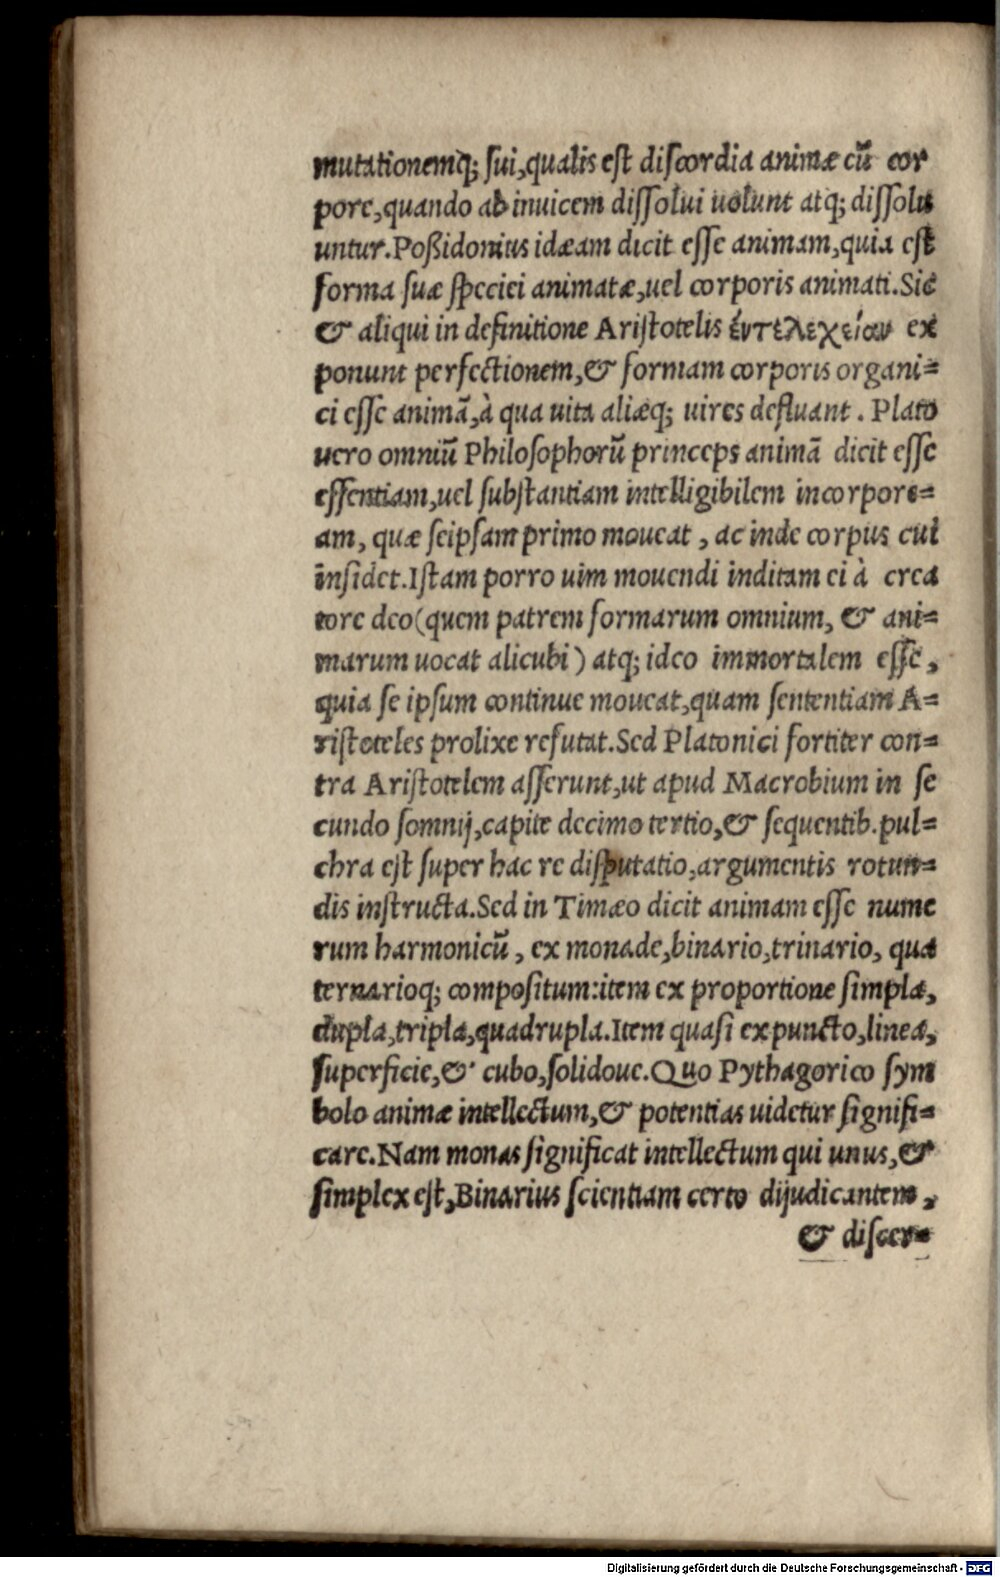 mutationemq́; sui,qualis est discordia animæ cũ cor
pore,quando ab inuicem dissolui uolunt atq; dissolu
untur.Poßidonius idæam dicit esse animam,quia est
forma suæ speciei animatæ,uel corporis animati.Sic
& aliqui in definitione Aristotelis ἐντελεχείαν ex
ponunt perfectionem,& formam corporis organi=
ci esse animã,à qua uita aliæq; uires defluant . Plato
uero omniũ Philosophorũ princeps animã dicit esse
essentiam,uel substantiam intelligibilem incorpore=
am, quæ seipsam primo moueat , ac inde corpus cui
insidet.Istam porro uim mouendi inditam ei à crea
tore deo(quem patrem formarum omnium, & ani=
marum uocat alicubi) atq; ideo immortalem esse,
quia se ipsum continue moueat,quam sententiam A=
ristoteles prolixe refutat.Sed Platonici fortiter con=
tra Aristotelem asserunt,ut apud Macrobium in se
cundo somnij,capite decimo tertio,& sequentib.pul=
chra est super hac re disputatio,argumentis rotun=
dis instructa.Sed in Timæo dicit animam esse nume
rum harmonicũ, ex monade,binario,trinario, qua
ternarioq; compositum:item ex proportione simpla,
dupla,tripla,quadrupla.Item quasi ex puncto,linea,
superficie,& cubo,solidoue.Quo Pythagorico sym
bolo animæ intellectum,& potentias uidetur signifi=
care.Nam monas significat intellectum qui unus,&
simplex est,Binarius scientiam certo dijudicantem,
& discer=
Digitalisierung gefördert durch die Deutsche Forschungsgemeinschaft - DFG